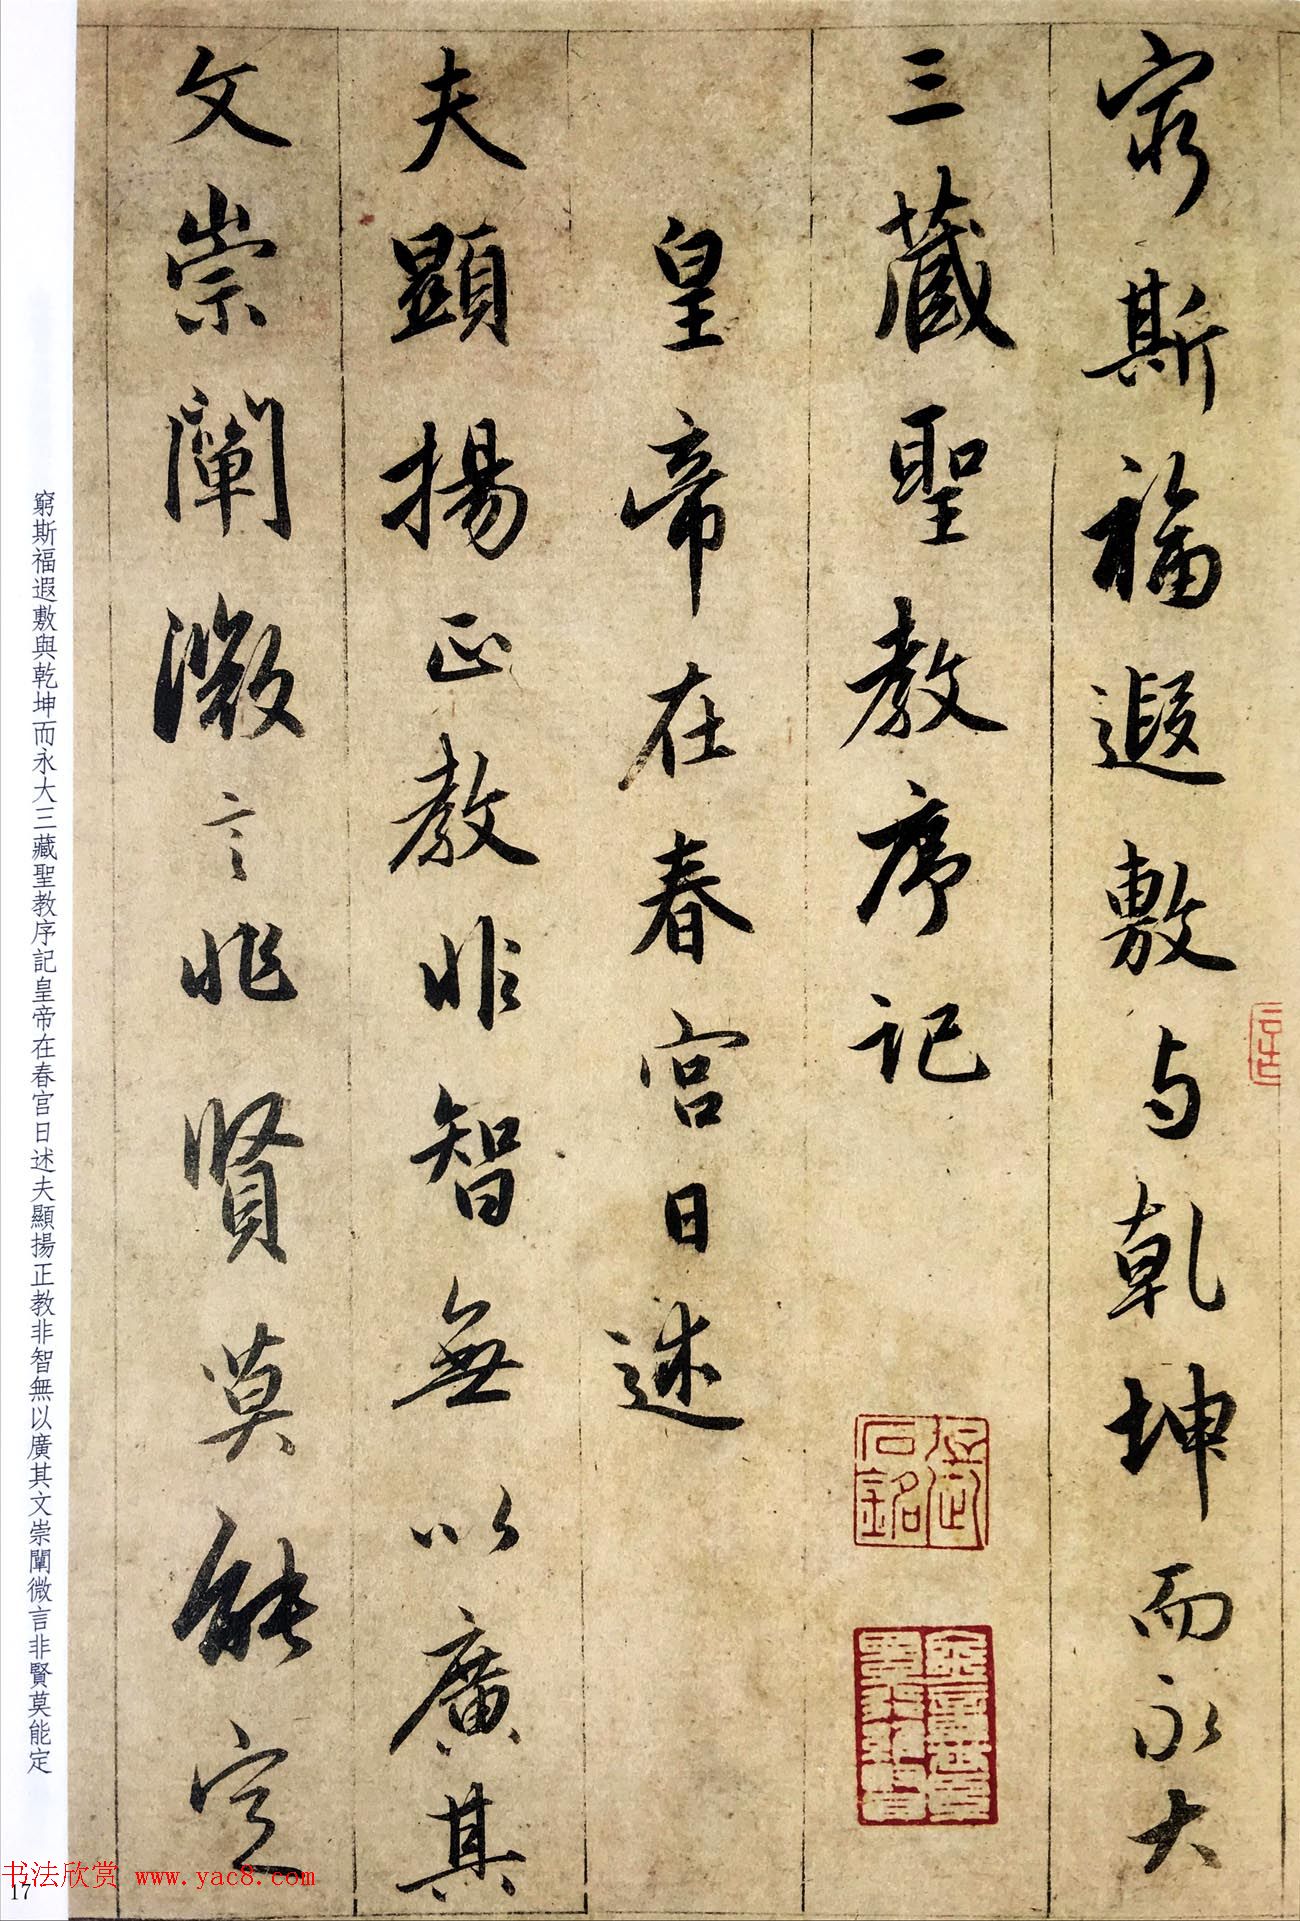 窮斯福遐敷與乾坤而永大
三藏聖教序記
皇帝在春宮日述
夫顯揚正教非智無以廣其
文崇闡微言非賢莫能定
窮斯福遐敷與乾坤而永大三藏聖教序記皇帝在春宮日述夫顯揚正教非智無以廣其文崇闡微言非賢莫能定
书法欣赏 www.yac8.com
17